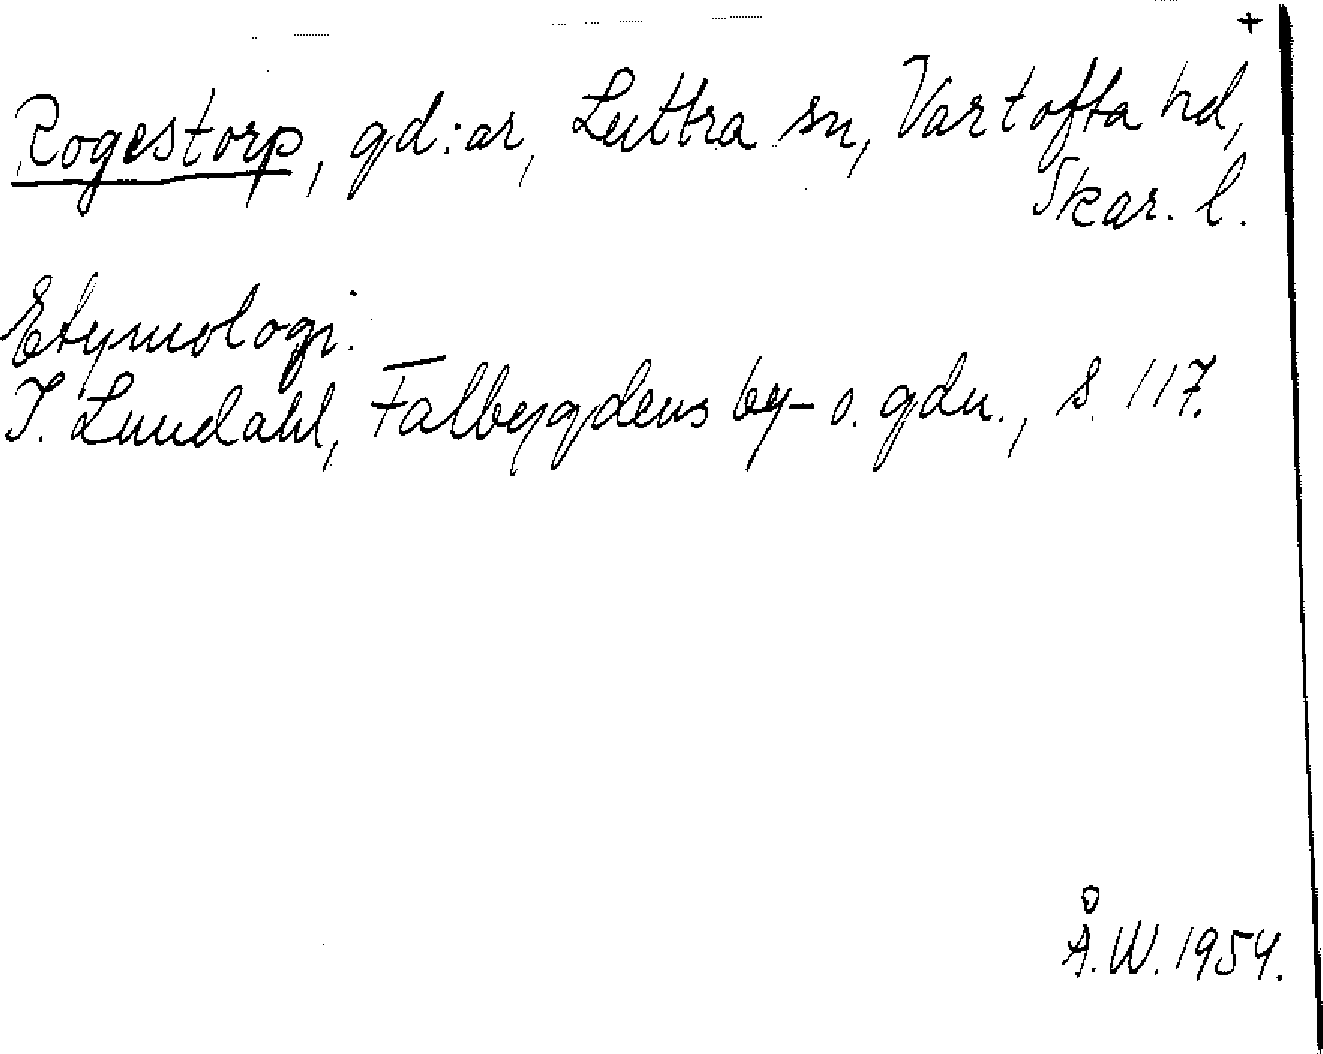 +
Rogestorp, gd:ar, Luttra sn, Vartofta hd,
Skar. l.
Etymologi.
I. Lundahl, Falbygdens by- o. gdn., s. 117.
Å.W. 1954.